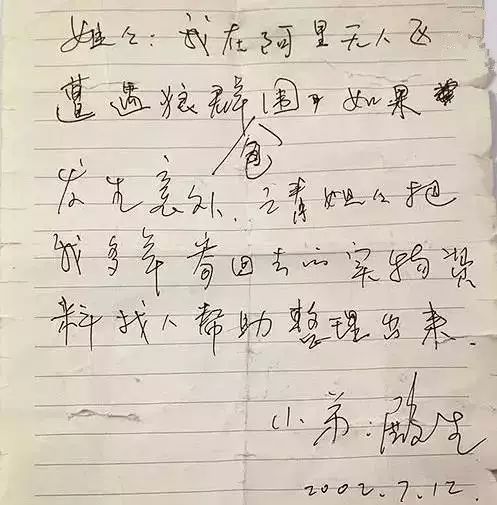 姐々：我在阿里无人区
遭遇狼群包围了如果
发生意外，请姐々把
我多年寄回去的实物资
料找人帮助整理出来.
小弟：殿生
2002.7.12.